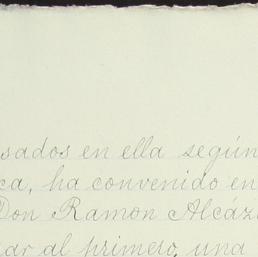 sados en ella según
ca, ha convenido en
Don Ramon Alcáz
ar al primero, una